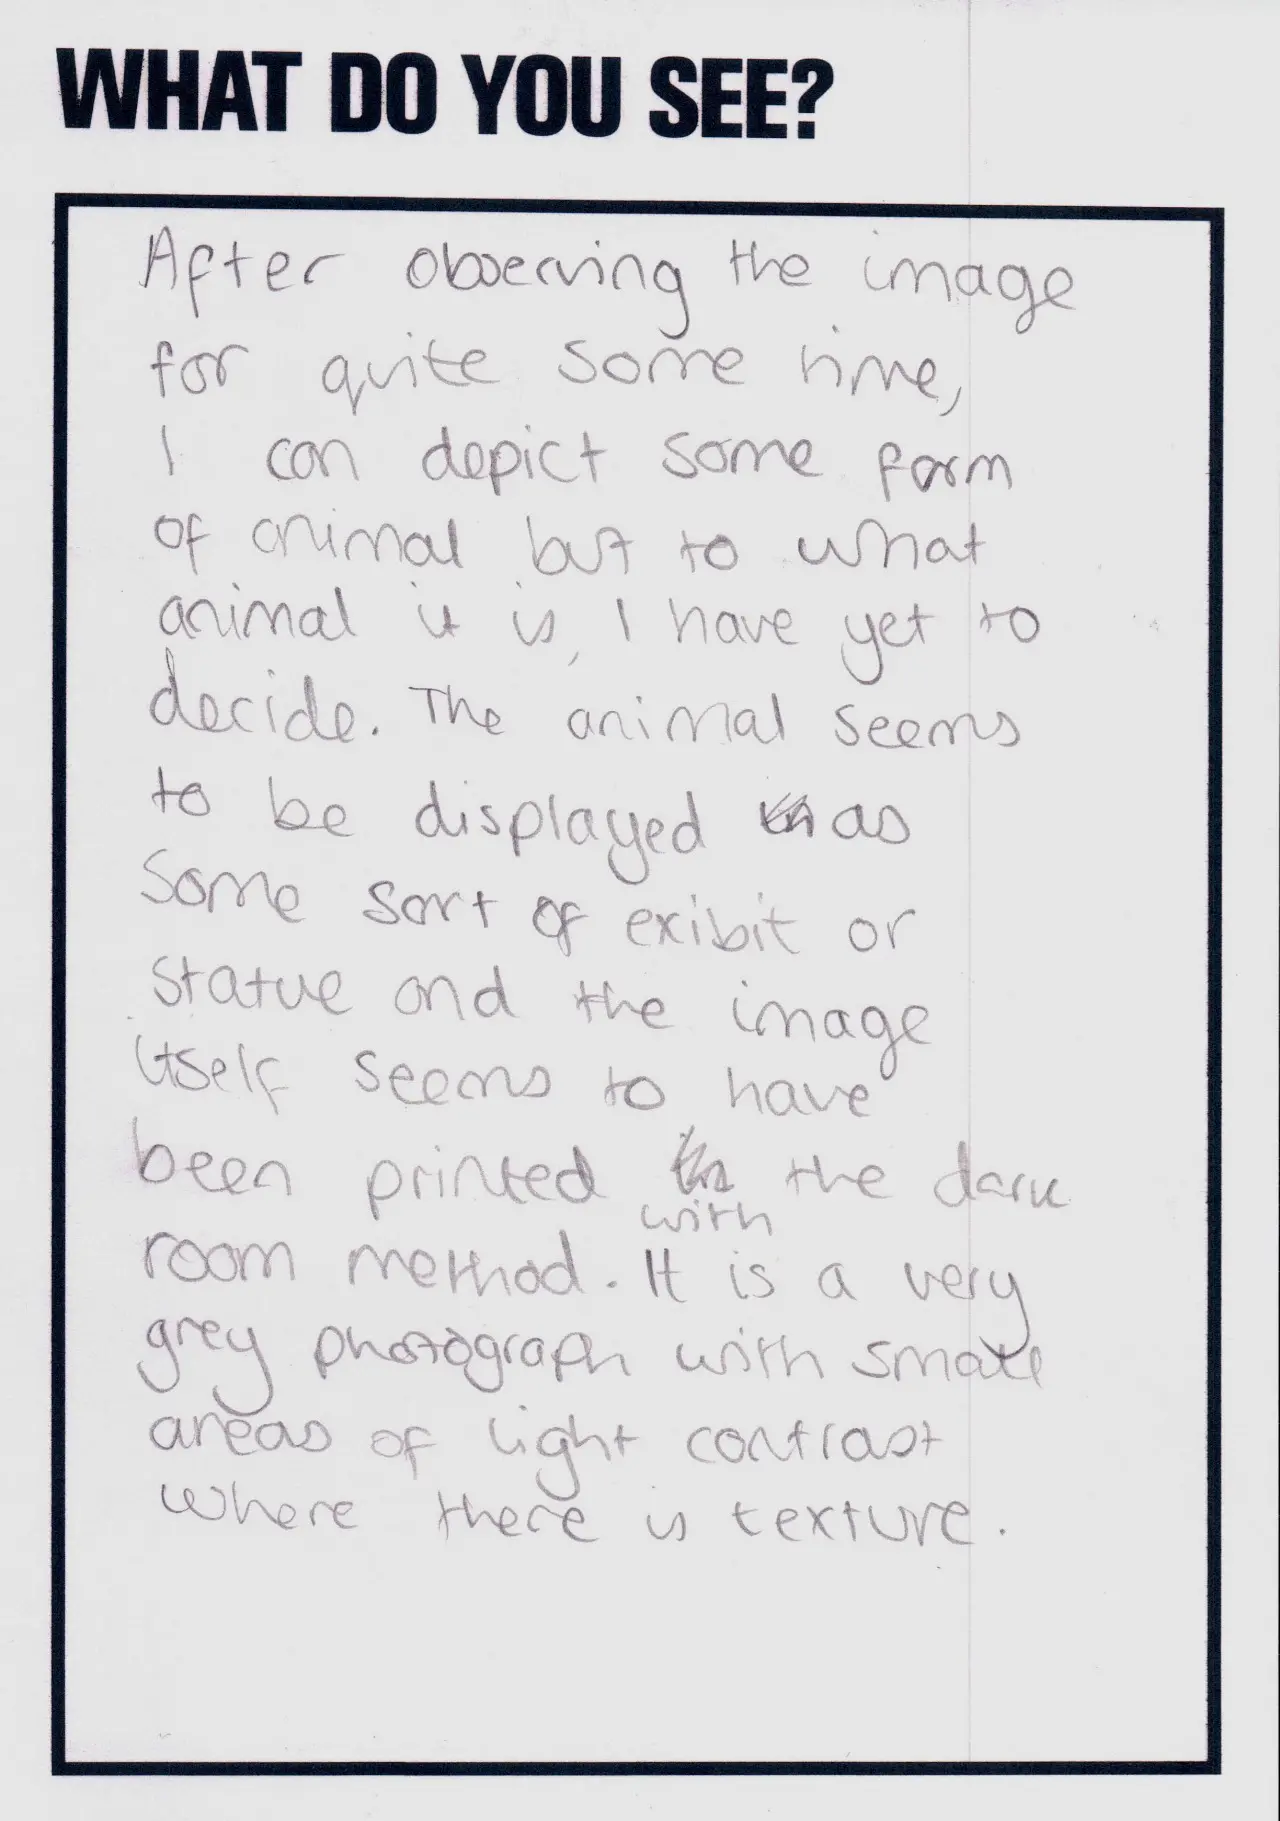 WHAT DO YOU SEE?
After observing the image
for quite some time,
I can depict some form
of animal but to what
animal it is, I have yet to
decide. The animal seems
to be displayed as
some sort of exibit or
statue and the image
itself seems to have
been printed the dark
with
room method. It is a very
grey photograph with small
areas of light contrast
where there is texture.